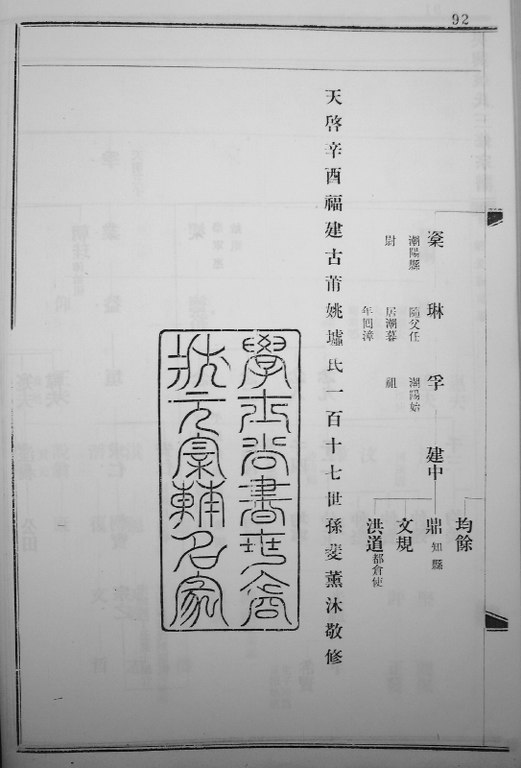 92
楶 潮陽縣尉
琳 隨父任居潮暮年囘漳
孚 潮陽始祖
建中
均餘
鼎 知縣
文規
洪道 都倉使
天啓辛酉福建古莆姚墟氏一百十七世孫斐薰沐敬修
學士尚書世裔
狀元宰輔名家